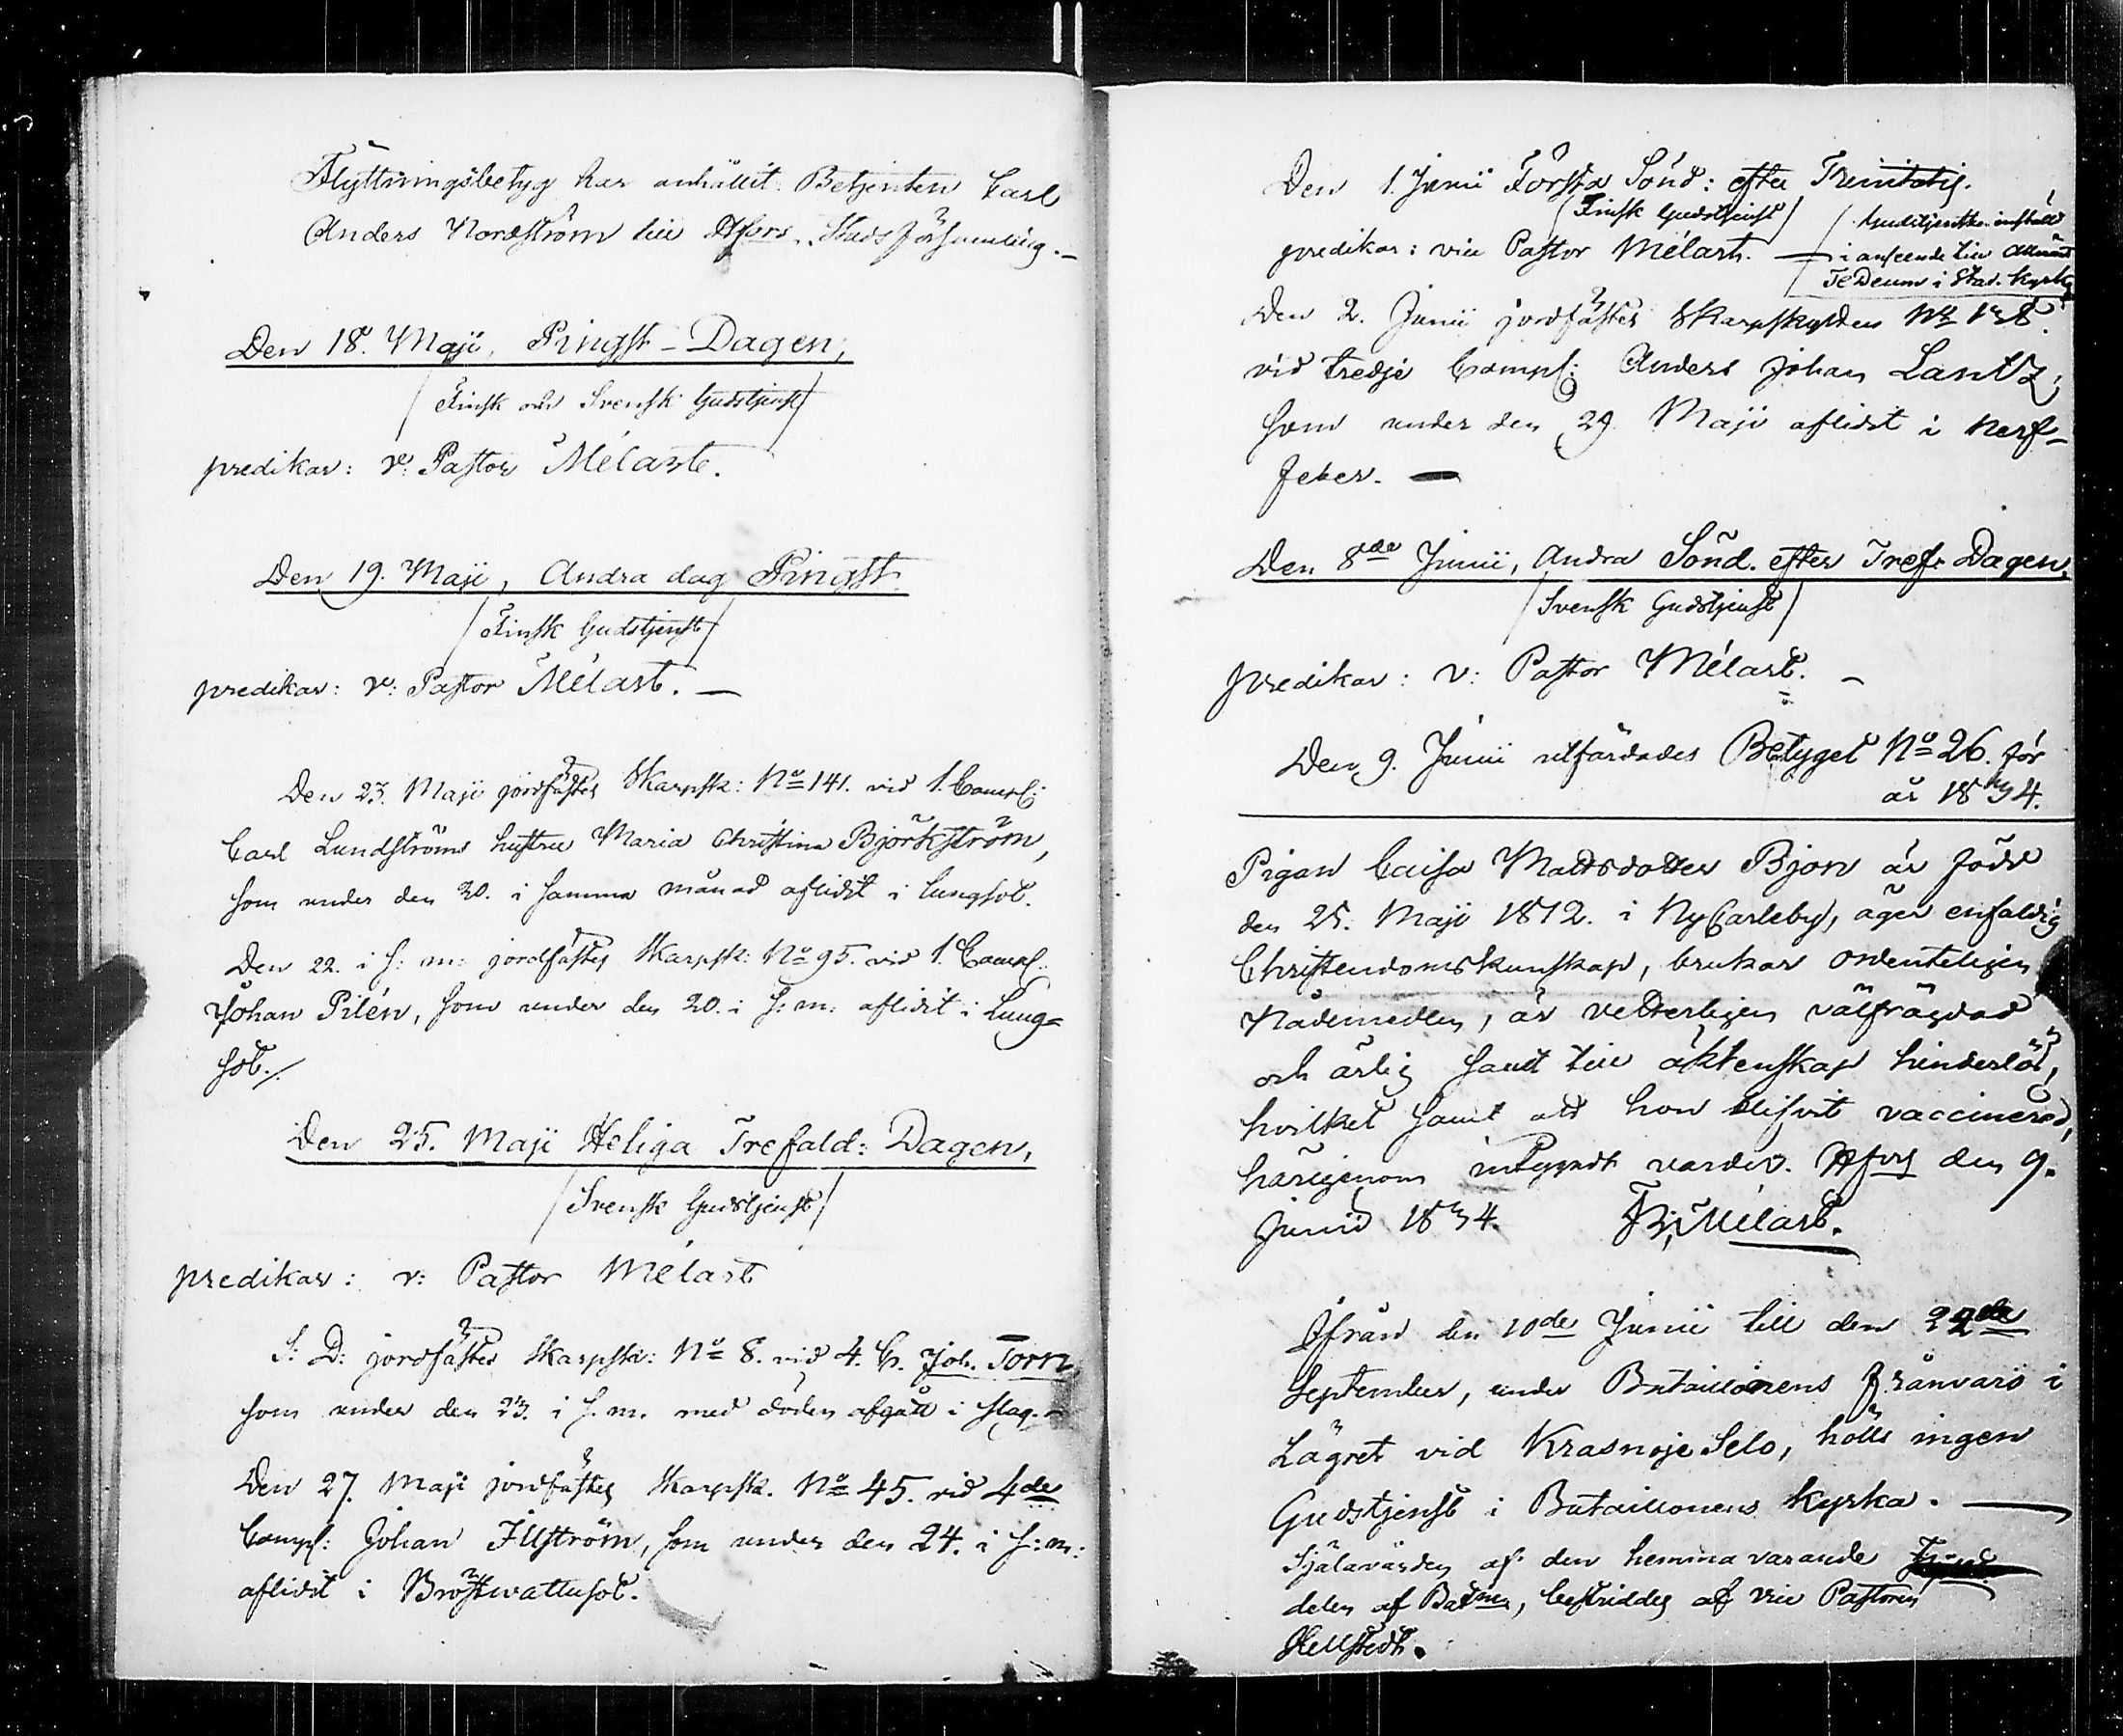 Flyttningsbetyg har anhållit Betjenten Carl
Anders Nordström till Hfors Stads församling.–
Den 18. Maji, Pingst-Dagen,
/Finsk och Svensk Gudstjenst/
predikar: v: Pastor Mélart.
Den 19. Maji, Andra dag Pingst
/Finsk Gudstjenst/
predikar: v: Pastor Mélart. —
Den 23. Maji jordfästes Skarpsk: No 141. vid 1. Comp:
Carl Lundströms hustru Maria Christina Björkström,
som under den 20. i samma månad aflidit i lungsot.
Den 22. i s: m: jordfästes Skarpsk: No 95. vid 1. Comp:
Johan Pilén, som under den 20. i s: m: aflidit i Lung=
sot./.
Den 25. Maji Heliga Trefald: Dagen,
/Svensk Gudstjenst/
predikar: v: Pastor Mélart
S: D: jordfästes Skarpsk: No 8. vid 4. C. Joh. Torn,
som under den 23. i s. m. med döden afgått i slag.–
Den 27. Maji jordfästes Skarpsk. No 45. vid 4de
Comp: Johan Illström, som under den 24. i s: m:
aflidit i Bröstwattusot.
Den 1. Junii Första Sönd: efter Trinitatis.
/Finsk Gudstjenst/
/Gudstjensten inställd
predikar: vice Pastor Mélart. —
i anseende till Allmänt
Te Deum i Stad. Kyrka
Den 2. Junii jordfästes Skarpskytten No 138.
vid tredje Comp: Anders Johan Lantz,
som under den 29. Maji aflidit i Nerf-
feber. —
Den 8de Junii, Andra Sönd. efter Tref: Dagen,
/Svensk Gudstjenst/
predikar: v: Pastor Mélart. –
Den 9. Junii utfärdades Betyget No 26. för
år 1834.
Pigan Caisa Mattsdotter Bjon är född
den 25. Maji 1812. i NyCarleby, äger enfaldig
Christendomskunskap, brukar ordenteligen
Nådemedlen, är vetterligen välfrägdad
och ärlig samt till äktenskap hinderlös,
hvilket samt att hon blifvit vaccinerad,
härigenom intygadt varder. Hfors den 9.
Junii 1834. Mélart.
Ifrån den 10de Junii till den 22de
September, under Bataillonens frånvaro i
Lägret vid Krasnoje Selo, hölls ingen
Gudstjenst i Bataillonens Kyrka. —
Själavården af den hemma varande
delen af Batnen, bestriddes af vice Pastoren
Hellstedt.